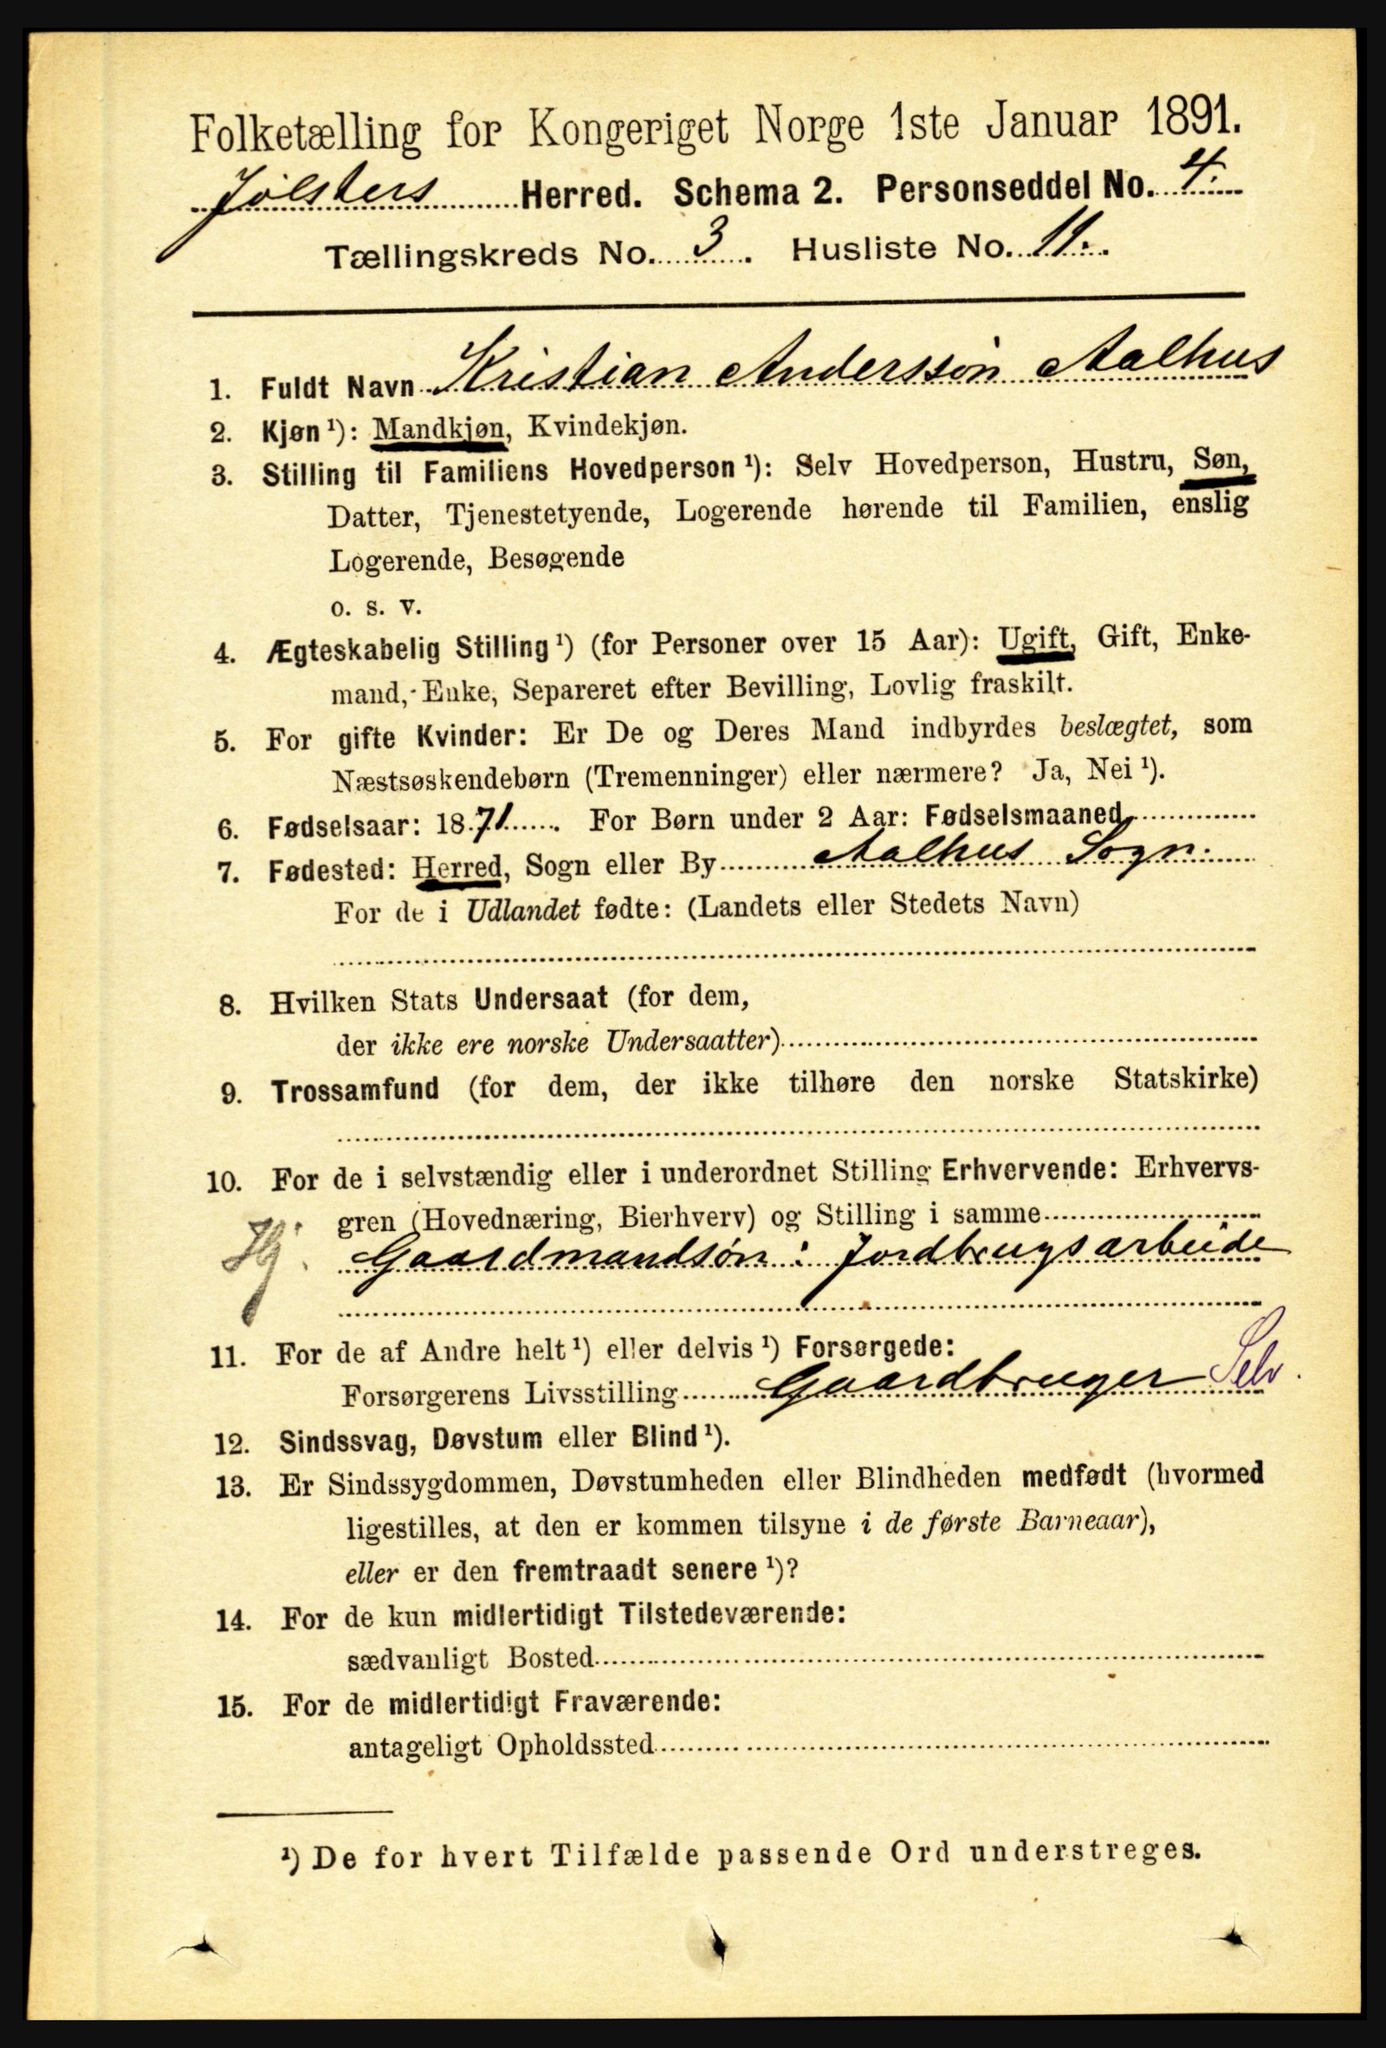 Folketælling for Kongeriget Norge 1ste Januar 1891.
Jølsters Herred. Schema 2. Personseddel No. 4.
Tællingskreds No. 3. Husliste No. 11.
1. Fuldt Navn Kristian Anderssøn Aalhus
2. Kjøn ¹): Mandkjøn, Kvindekjøn.
3. Stilling til Familiens Hovedperson ¹): Selv Hovedperson, Hustru, Søn,
Datter, Tjenestetyende, Logerende hørende til Familien, enslig
Logerende, Besøgende
o. s. v.
4. Ægteskabelig Stilling ¹) (for Personer over 15 Aar): Ugift, Gift, Enke-
mand, Enke, Separeret efter Bevilling, Lovlig fraskilt.
5. For gifte Kvinder: Er De og Deres Mand indbyrdes beslægtet, som
Næstsøskendebørn (Tremenninger) eller nærmere? Ja, Nei ¹).
6. Fødselsaar: 1871. For Børn under 2 Aar: Fødselsmaaned
7. Fødested: Herred, Sogn eller By Aalhus Sogn.
For de i Udlandet fødte: (Landets eller Stedets Navn)
8. Hvilken Stats Undersaat (for dem,
der ikke ere norske Undersaatter)
9. Trossamfund (for dem, der ikke tilhøre den norske Statskirke)
10. For de i selvstændig eller i underordnet Stilling Erhvervende: Erhvervs-
gren (Hovednæring, Bierhverv) og Stilling i samme
Hj. Gaardmandsøn: Jordbrugsarbeide
11. For de af Andre helt ¹) eller delvis ¹) Forsørgede:
Forsørgerens Livsstilling Gaardbruger Selv.
12. Sindssvag, Døvstum eller Blind ¹).
13. Er Sindssygdommen, Døvstumheden eller Blindheden medfødt (hvormed
ligestilles, at den er kommen tilsyne i de første Barneaar),
eller er den fremtraadt senere ¹)?
14. For de kun midlertidigt Tilstedeværende:
sædvanligt Bosted
15. For de midlertidigt Fraværende:
antageligt Opholdssted
¹) De for hvert Tilfælde passende Ord understreges.